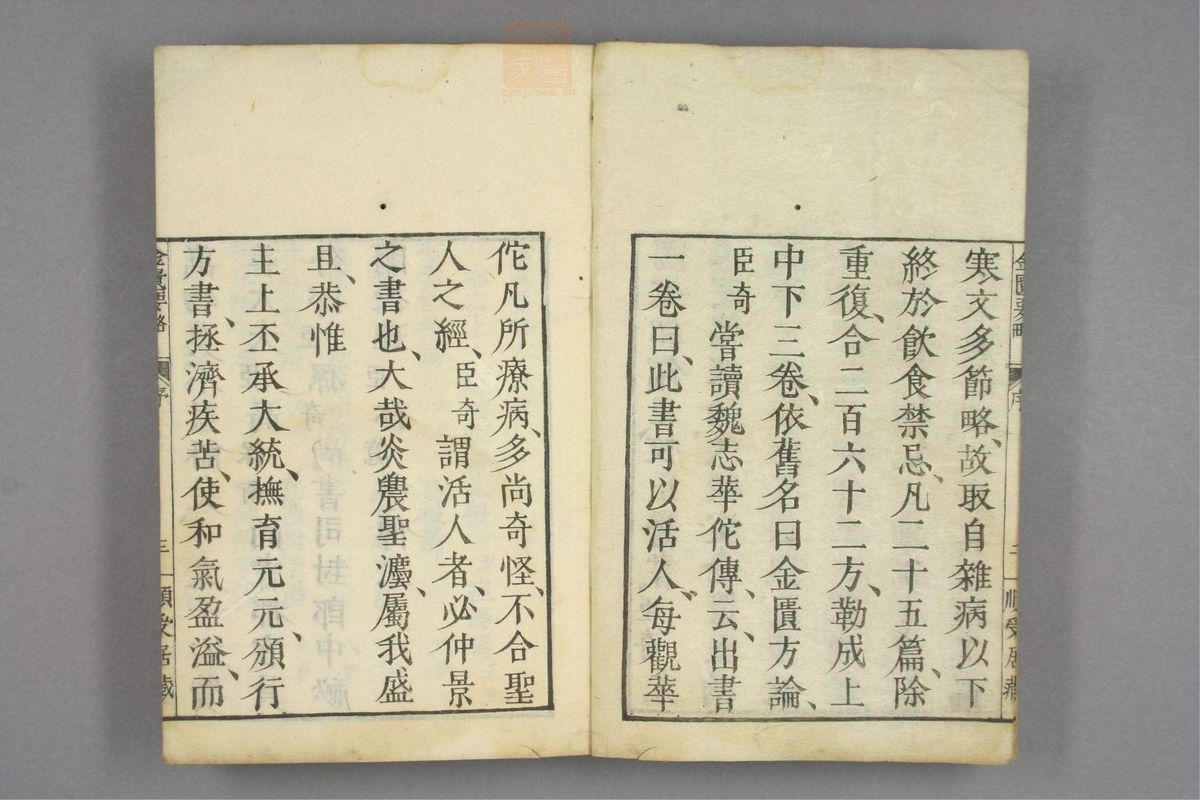 寒文多節略、故取自雜病以下
終於飲食禁忌、凡二十五篇、除
重復、合二百六十二方、勒成上
中下三卷、依舊名曰金匱方論、
臣奇嘗讀魏志華佗傳、云、出書
一卷曰、此書可以活人、每觀華
佗凡所療病、多尚奇怪、不合聖
人之經、臣奇謂活人者、必仲景
之書也、大哉炎農聖灋、屬我盛
旦、恭惟
主上丕承大統、撫育元元、頒行
方書、拯濟疾苦、使和氣盈溢、而
金匱要略
序
三
順受居藏